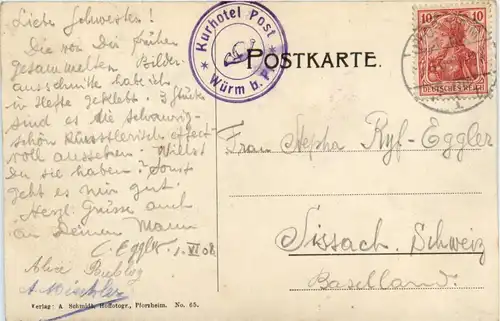 Liebe Schwester!
Die von Dir früher
gesammelten Bilder-
ausschnitte habe ich
in Hefte geklebt. 3 Stücke
sind es die
schön künstlerisch effect
voll aussehen. Willst
Du sie haben? Sonst
geht es mir gut.
Herzl. Grüsse auch
an Deinen Mann
C. Eggler. 1. VI 08
Alice
A.
Verlag: A Schmidt, Hoffotogr., Pforzheim. No. 65.
Kurhotel Post
Würm b. Pf.
POSTKARTE.
10 10
DEUTSCHES REICH
Frau Stepha Ryf-Eggler
Sissach. Schweiz
Baselland.